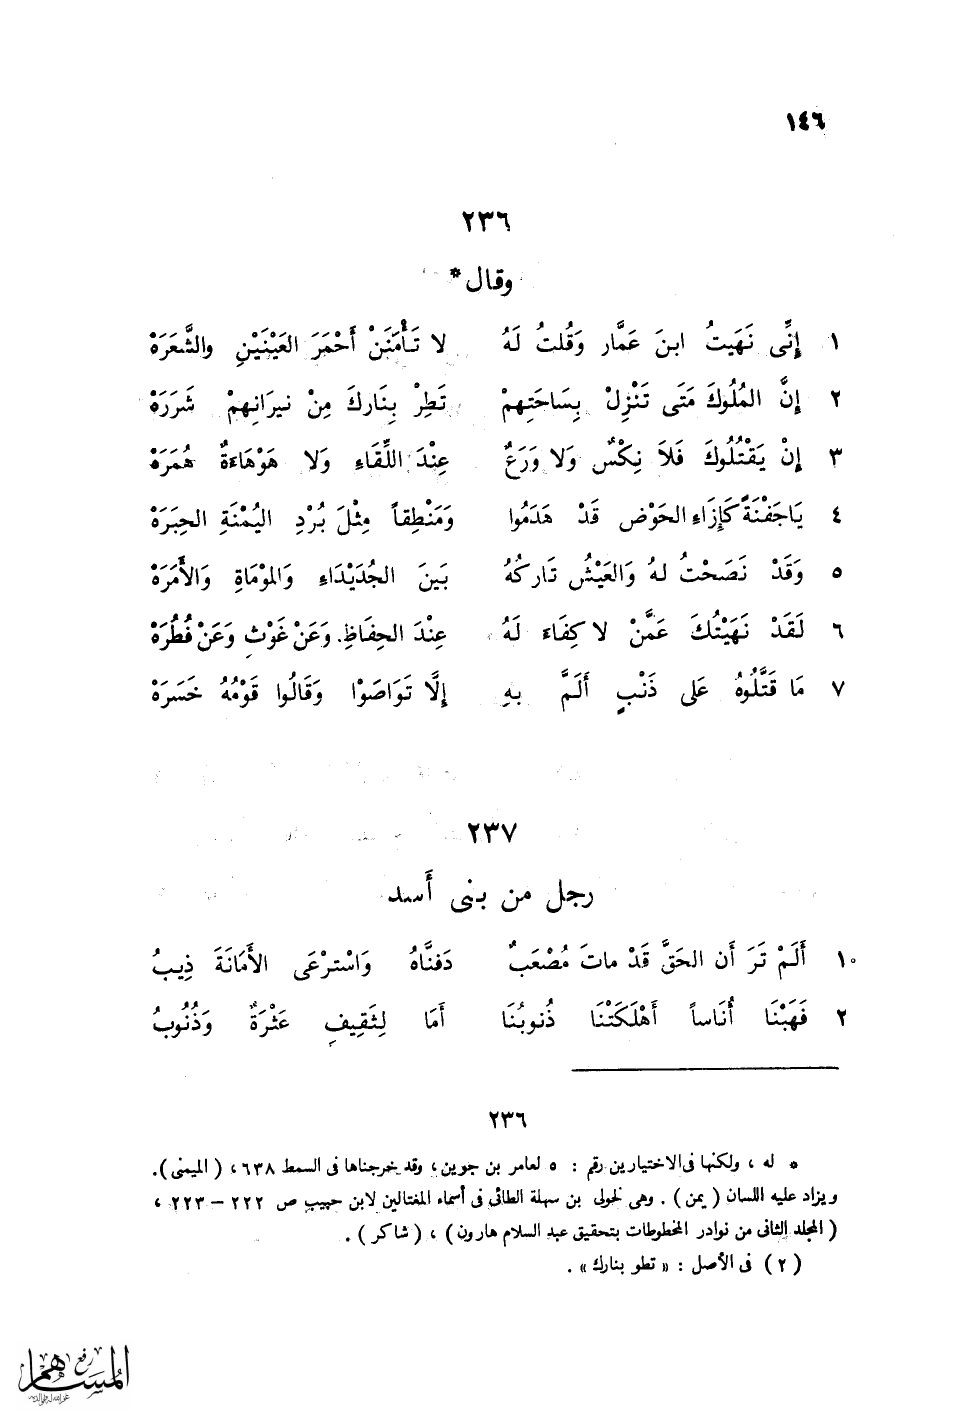 ١٤٦
٢٣٦
وقال*
١ إِنِّى نَهَيتُ ابنَ عَمَّار وَقُلتُ لَهُ لا تَأْمَنَنْ أَحْمَرَ العَيْنَيْنِ والشَّعَرَهْ
٢ إِنَّ المُلُوكَ مَتَى تَنْزِلْ بِسَاحَتِهِمْ تَطِرْ بِنَارِكَ مِنْ نيرَانِهِمْ شَرَرَهْ
٣ إِنْ يَقْتُلُوكَ فَلاَ نِكْسٌ وَلا وَرَعٌ عِنْدَ اللِّقَاءِ وَلا هَوْهَاءَةٌ هُمَرَهْ
٤ يَا جَفْنَةً كَإِزَاءِ الحَوْضِ قَدْ هَدَمُوا وَمَنْطِقاً مِثْلَ بُرْدِ اليُمْنَةِ الحِبَرَهْ
٥ وَقَدْ نَصَحْتُ لهُ وَالعَيْشُ تَارِكُهُ بَينَ الجُدَيْدَاءِ وَالمَوْمَاةِ وَالأَمَرَهْ
٦ لَقَدْ نَهَيْتُكَ عَمَّنْ لا كِفَاءَ لَهُ عِنْدَ الحِفَاظِ. وَعَنْ غَوْثٍ وَعَنْ فُطُرَهْ
٧ مَا قَتَّلُوهُ عَلى ذَنْبٍ أَلَمَّ بهِ إِلَّا تَوَاصَوْا وَقَالُوا قَوْمُهُ خَسَرَهْ
٢٣٧
رجل من بنى أَسد
١٠ أَلَمْ تَرَ أَن الحَقَّ قَدْ ماتَ مُصْعَبٌ دَفنَّاهُ وَاسْترْعَى الأَمَانَةَ ذِيبُ
٢ فَهَبْنَا أُنَاساً أَهْلَكَتْنَا ذُنوبُنَا أَمَا لِثَقِيفٍ عَثْرَةٌ وَذُنُوبُ
٢٣٦
* له ، ولكنها فى الاختيارين رقم : ٥ لعامر بن جوين ، وقد خرجناها فى السمط ٦٣٨ ، ( الميمنى ).
ويزاد عليه اللسان ( يمن ) . وهى لخولى بن سهلة الطائى فى أسماء المغتالين لابن حبيب ص ٢٢٢ – ٢٢٣ ،
( المجلد الثانى من نوادر المخطوطات بتحقيق عبد السلام هارون ) ، ( شاكر ) .
( ٢ ) فى الأصل : « تطو بنارك » .
رفع
المساهم